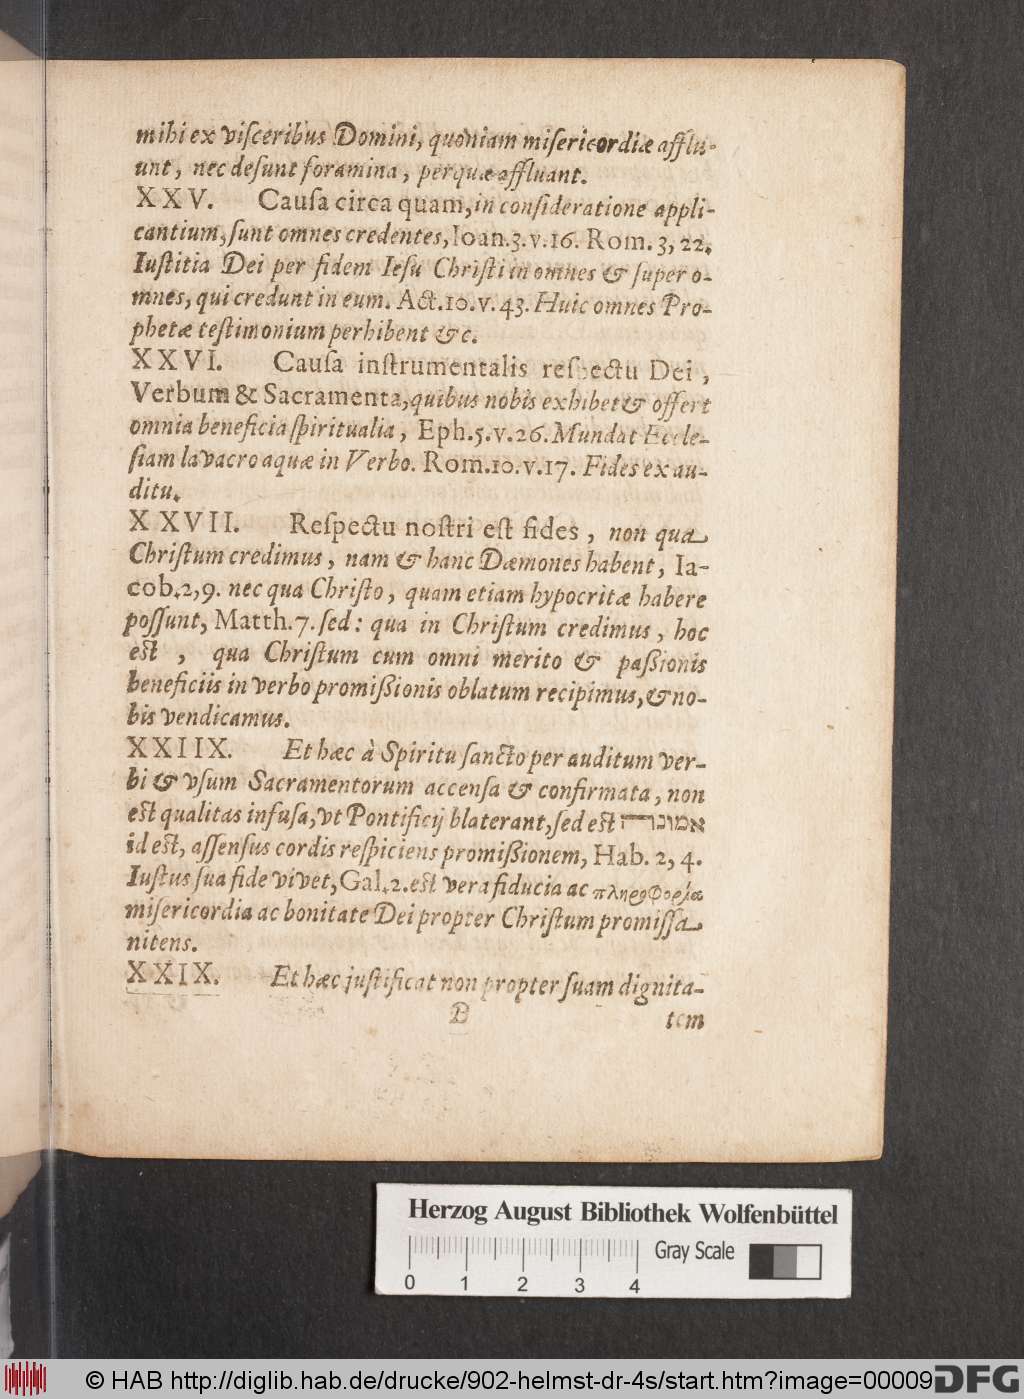 mihi ex viſceribus Domini, quoniam miſericordiæ afflu-
unt, nec deſunt foramina, per quæ affluant.
XXV. Cauſa circa quam, in conſideratione appli-
cantium, ſunt omnes credentes, Ioan.3.v.16. Rom. 3, 22.
Iuſtitia Dei per fidem Ieſu Chriſti in omnes & ſuper o-
mnes, qui credunt in eum. Act.10.v.43. Huic omnes Pro-
phetæ teſtimonium perhibent &c.
XXVI. Cauſa inſtrumentalis reſpectu Dei,
Verbum & Sacramenta, quibus nobis exhibet & offert
omnia beneficia ſpiritualia, Eph.5.v.26. Mundat Eccle-
ſiam lavacro aquæ in Verbo. Rom.10.v.17. Fides ex au-
ditu.
XXVII. Reſpectu noſtri eſt fides, non qua
Chriſtum credimus, nam & hanc Dæmones habent, Ia-
cob.2,9. nec qua Chriſto, quam etiam hypocritæ habere
poſſunt, Matth.7. ſed: qua in Chriſtum credimus, hoc
eſt, qua Chriſtum cum omni merito & paßionis
beneficiis in verbo promißionis oblatum recipimus, & no-
bis vendicamus.
XXIIX. Et hæc à Spiritu ſancto per auditum ver-
bi & vſum Sacramentorum accenſa & confirmata, non
eſt qualitas infuſa, vt Pontificij blaterant, ſed eſt אמונה
id eſt, aſſenſus cordis reſpiciens promißionem, Hab. 2, 4.
Iuſtus ſua fide vivet, Gal.2. eſt vera fiducia ac πληροφορία
miſericordia ac bonitate Dei propter Chriſtum promiſſa
nitens.
XXIX. Et hæc juſtificat non propter ſuam dignita-
B tem
Herzog August Bibliothek Wolfenbüttel
Gray Scale
0 1 2 3 4
© HAB http://diglib.hab.de/drucke/902-helmst-dr-4s/start.htm?image=00009
DFG